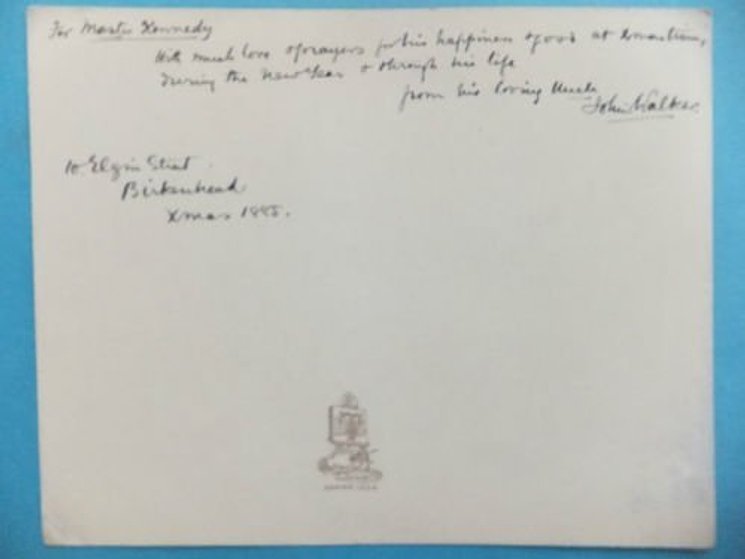 For Master Kennedy
With much love & prayers for his happiness & good at
During the New Year & through his life
from his loving Uncle
John Walker
10 Elgin Street
Birkenhead
Xmas 1885.